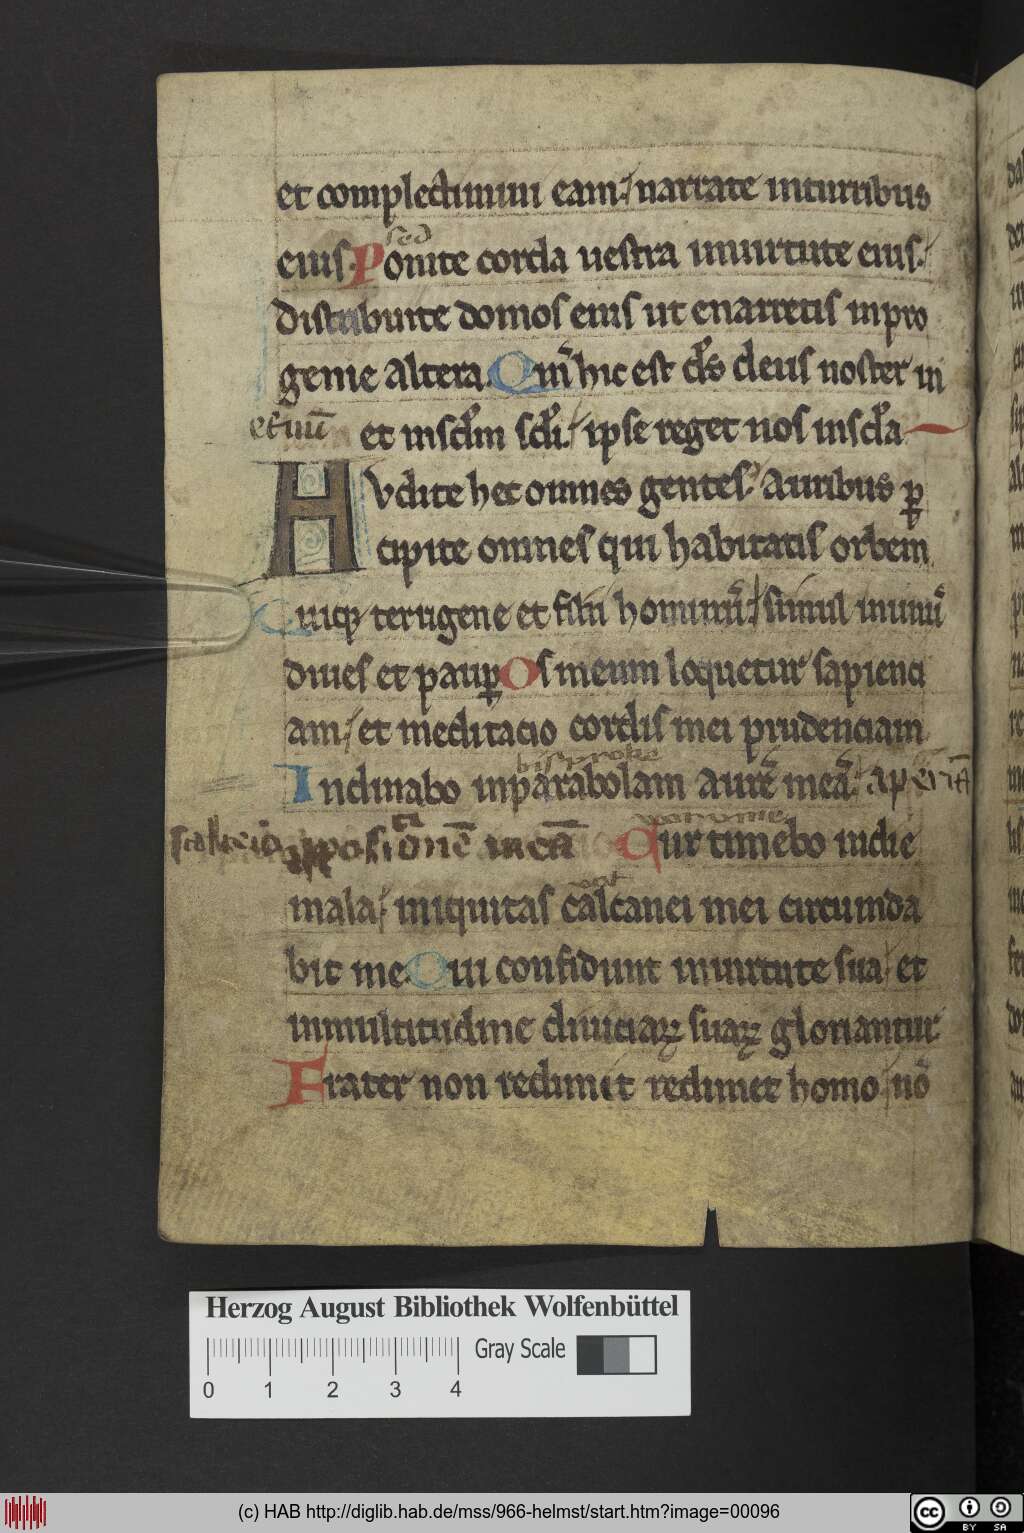 et complectimini eam: narrate inturribus
sed
eius. Ponite corda uestra inuirtute eius.
distribuite domos eius ut enarretis inpro
genie altera. Qm̄ hic est ds deus noster in
et̄nū et inscl̄m scl̄i: ipse reget nos inscl̄a
Avdite hec omnes gentes: auribus ꝑ
cipite omnes qui habitatis orbem
Quiqꝫ terrigene et filii hominū: simul inunū
diues et pauꝑ Os meum loquetur sapienci
am: et meditacio cordis mei prudenciam
Inclinabo inparabolam aurē meā: aperiā
psalterio propositionē meā Cur timebo indie
mala: iniquitas calcanei mei circumda
bit me Qui confidunt inuirtute sua: et
inmultitudine diuiciaꝝ suaꝝ gloriantur
Frater non redimit redimet homo: nō
Herzog August Bibliothek Wolfenbüttel
Gray Scale
0 1 2 3 4
(c) HAB http://diglib.hab.de/mss/966-helmst/start.htm?image=00096
CC BY SA